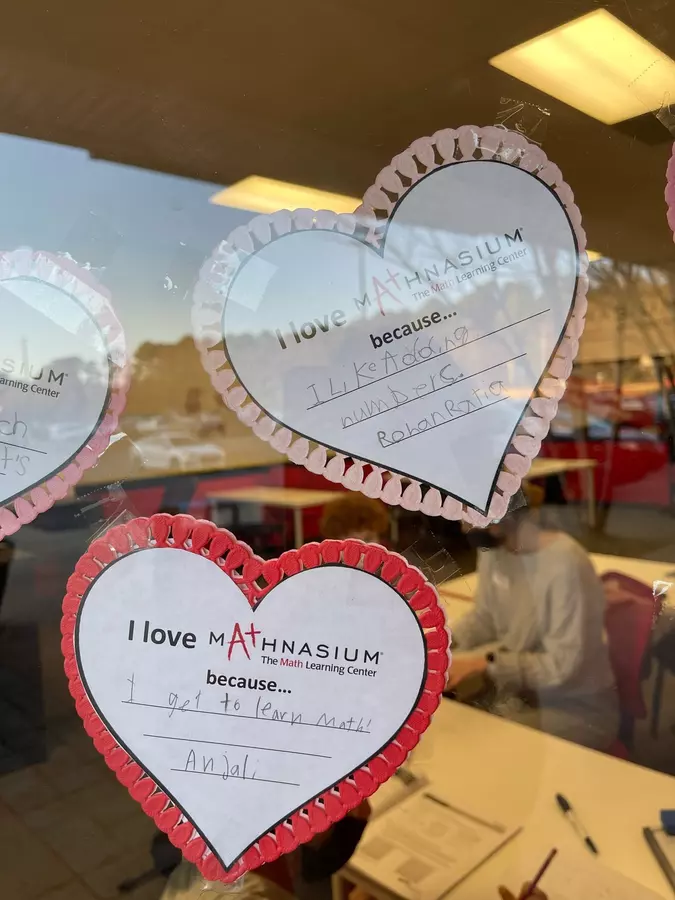 I love MATHNASIUM®
The Math Learning Center
because...
I Like Adding
numbers.
Rohan Batia
SIUM®
arning Center
ch
t's
I love MATHNASIUM®
The Math Learning Center
because...
I get to learn math!
Anjali